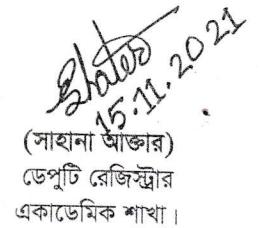 15.11.2021
(সাহানা আক্তার)
ডেপুটি রেজিস্ট্রার
একাডেমিক শাখা।